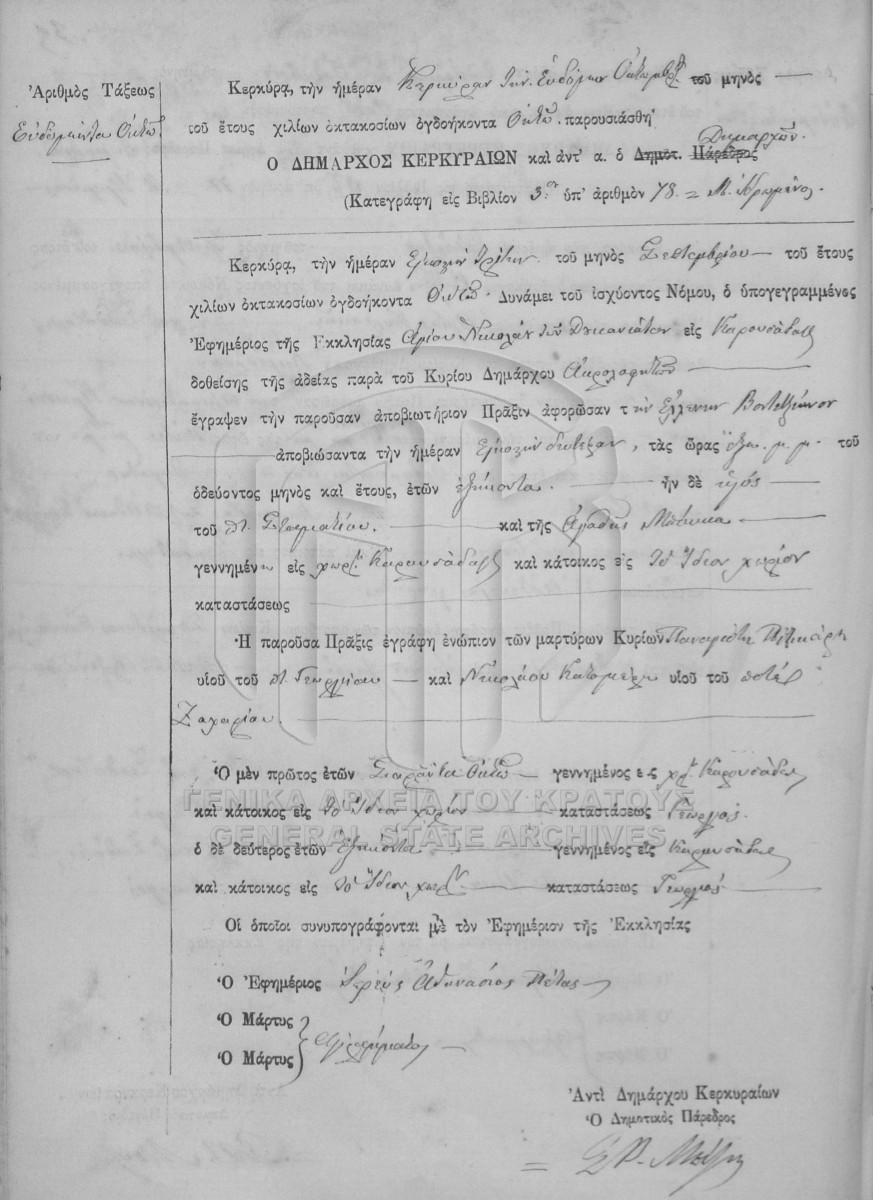 Ἀριθμὸς Τάξεως
Ἑβδομῆντα Ὀκτώ
Κερκύρᾳ, τὴν ἡμέραν Κερκύραν τὴν Ἑβδόμην Ὀκτωμβρ. τοῦ μηνὸς
τοῦ ἔτους χιλίων ὀκτακοσίων ὀγδοήκοντα Ὀκτώ. παρουσιάσθη
Δημαρχῶν.
Ο ΔΗΜΑΡΧΟΣ ΚΕΡΚΥΡΑΙΩΝ καὶ ἀντ' α. ὁ Δημοτ. Πάρεδρος
(Κατεγράφη εἰς Βιβλίον 3ον ὑπ' ἀριθμὸν 78 =
Κερκύρᾳ, τὴν ἡμέραν Εἰκοστὴν τρίτην τοῦ μηνὸς Σεπτεμβρίου τοῦ ἔτους
χιλίων ὀκτακοσίων ὀγδοήκοντα Ὀκτώ. Δυνάμει τοῦ ἰσχύοντος Νόμου, ὁ ὑπογεγραμμένος
Ἐφημέριος τῆς Ἐκκλησίας Ἁγίου Νικολάου τῶν εἰς Καρουσάδες
δοθείσης τῆς ἀδείας παρὰ τοῦ Κυρίου Δημάρχου
ἔγραψεν τὴν παροῦσαν ἀποβιωτήριον Πρᾶξιν ἀφορῶσαν τὴν Ἑλένην
ἀποβιώσαντα τὴν ἡμέραν Εἰκοστὴν δευτέραν, τὰς ὥρας ἕξ μ. μ. τοῦ
ὁδεύοντος μηνὸς καὶ ἔτους, ἐτῶν ἑξήκοντα ἦν δὲ υἱός
τοῦ π. Σταματίου καὶ τῆς Ἀγάθης
γεννημένη εἰς χωρ. Καρουσάδες καὶ κάτοικος εἰς τὸ ἴδιον χωρίον
καταστάσεως
Ἡ παροῦσα Πρᾶξις ἐγράφη ἐνώπιον τῶν μαρτύρων Κυρίων Παναγιώτη
υἱοῦ τοῦ π. Γεωργίου καὶ Νικολάου υἱοῦ τοῦ ποτὲ
Ζαχαρίου.
Ὁ μὲν πρῶτος ἐτῶν Σαράντα Ὀκτώ γεννημένος εἰς χρ. Καρουσάδες
καὶ κάτοικος εἰς τὸ ἴδιον χωρίον καταστάσεως Γεωργός.
ὁ δὲ δεύτερος ἐτῶν Ἑξῆντα γεννημένος εἰς Καρουσάδες
καὶ κάτοικος εἰς τὸ ἴδιον χωρ. καταστάσεως Γεωργός
Οἱ ὁποῖοι συνυπογράφονται μὲ τὸν Ἐφημέριον τῆς Ἐκκλησίας
Ὁ Ἐφημέριος Ἱερεὺς Ἀθανάσιος
Ὁ Μάρτυς
Ὁ Μάρτυς
Ἀγράμματοι
Ἀντὶ Δημάρχου Κερκυραίων
Ὁ Δημοτικὸς Πάρεδρος
ΓΕΝΙΚΑ ΑΡΧΕΙΑ ΤΟΥ ΚΡΑΤΟΥΣ
GENERAL STATE ARCHIVES